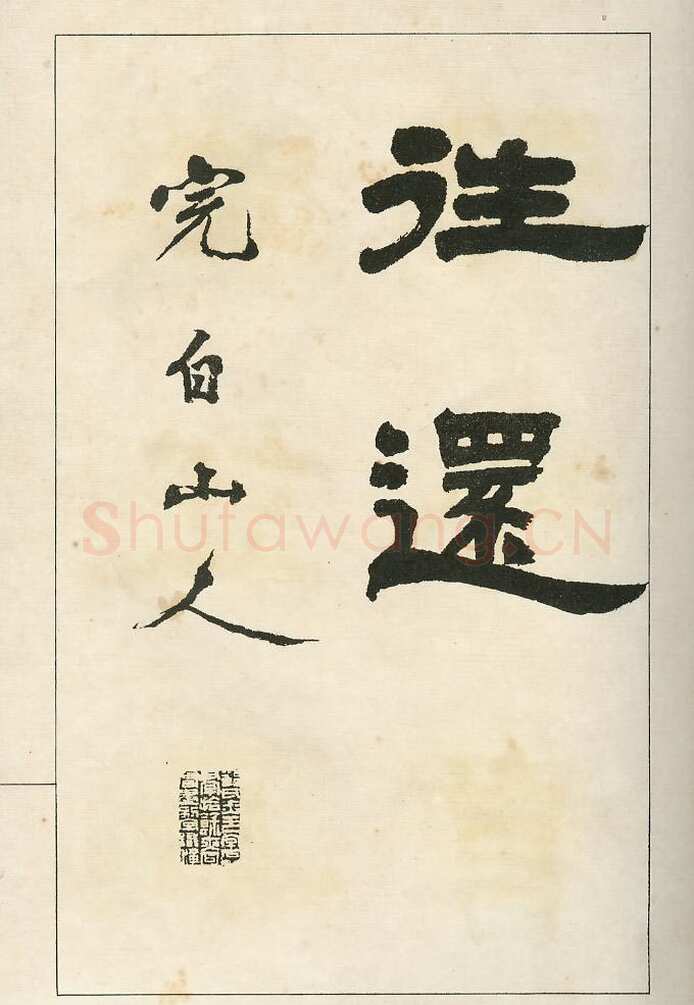 往還
完白山人
Shufawang.CN